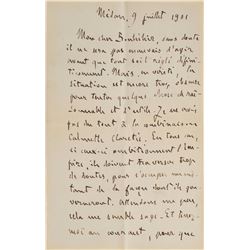 Médan, 9 juillet 1901
Mon cher              , sans doute
il ne sera pas mauvais d'agir
avant que tout soit réglé défini-
tivement. Mais, en vérité, la
situation est encore trop obscure
pour tenter quelque chose de rai-
sonnable et d'utile. Je ne crois
pas du tout à la combinaison
Calmette Claretie. En tous cas,
si ceux-ci ambitionnent l'em-
pire, ils doivent traverser trop
de doutes, pour s'occuper
de la façon dont ils gou-
verneront. Attendons un peu,
cela me semble sage. Et tenez-
moi au courant, pour que